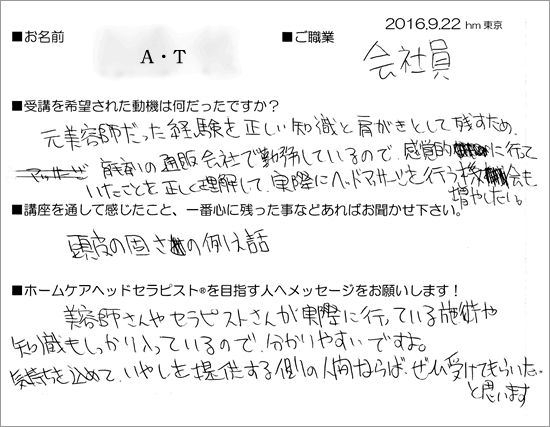 2016.9.22 hm東京
■お名前
A・T
■ご職業
会社員
■受講を希望された動機は何だったですか？
元美容師だった経験を正しい知識と肩がきとして残すため。
育毛剤の通販会社で勤務しているので、感覚的に行って
いたことを正しく理解して、実際にヘッドマッサージを行う機会も
増やしたい。
■講座を通して感じたこと、一番心に残った事などあればお聞かせ下さい。
頭皮の固さの例え話
■ホームケアヘッドセラピスト®を目指す人へメッセージをお願いします！
美容師さんやセラピストさんが実際に行っている施術や
知識もしっかり入っているので、分かりやすいですよ。
気持ちを込めて、いやしを提供する側の人間ならば、ぜひ受けてもらいたい
と思います